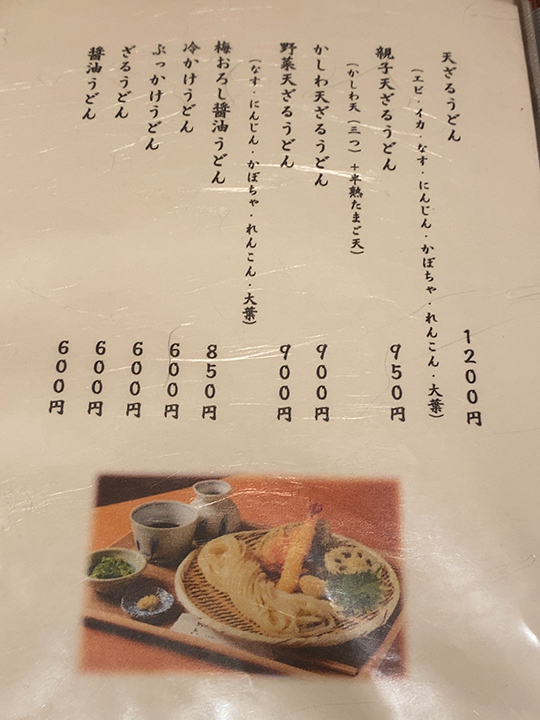 天ざるうどん 1200円
(エビ・イカ・なす・にんじん・かぼちゃ・れんこん・大葉)
親子天ざるうどん 950円
(かしわ天(三つ)+半熟たまご天)
かしわ天ざるうどん 900円
野菜天ざるうどん 900円
(なす・にんじん・かぼちゃ・れんこん・大葉)
梅おろし醤油うどん 850円
冷かけうどん 600円
ぶっかけうどん 600円
ざるうどん 600円
醤油うどん 600円